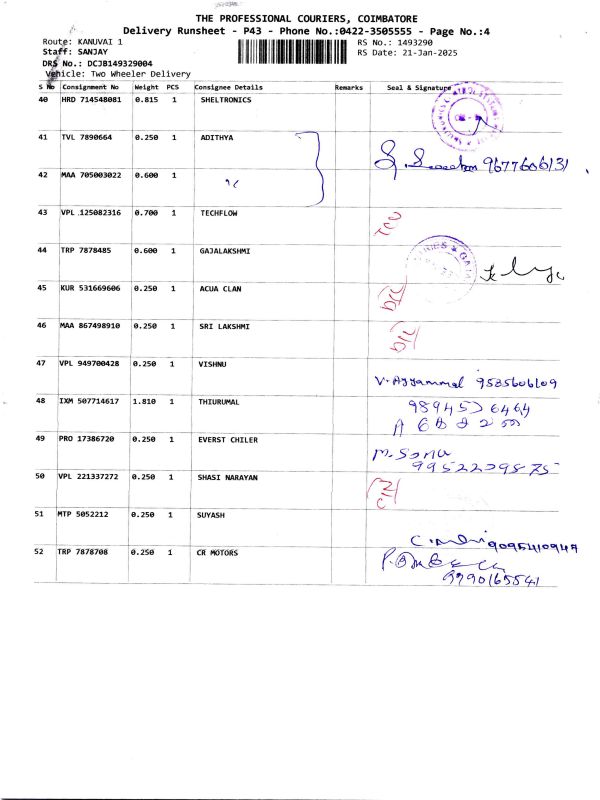 THE PROFESSIONAL COURIERS, COIMBATORE
Delivery Runsheet - P43 - Phone No.:0422-3505555 - Page No.:4
Route: KANUVAI 1 RS No.: 1493290
Staff: SANJAY RS Date: 21-Jan-2025
DRS No.: DCJB149329004
Vehicle: Two Wheeler Delivery
S No Consignment No Weight PCS Consignee Details Remarks Seal & Signature
40 HRD 714548081 0.815 1 SHELTRONICS
41 TVL 7890664 0.250 1 ADITHYA
9677606131
42 MAA 705003022 0.600 1
43 VPL 125082316 0.700 1 TECHFLOW
44 TRP 7878485 0.600 1 GAJALAKSHMI
45 KUR 531669606 0.250 1 ACUA CLAN
46 MAA 867498910 0.250 1 SRI LAKSHMI
47 VPL 949700428 0.250 1 VISHNU
V. Ayyammal 9585606109
48 IXM 507714617 1.810 1 THIURUMAL
49 PRO 17386720 0.250 1 EVERST CHILER
M. Sonu
50 VPL 221337272 0.250 1 SHASI NARAYAN
51 MTP 5052212 0.250 1 SUYASH
52 TRP 7878708 0.250 1 CR MOTORS
9790165541